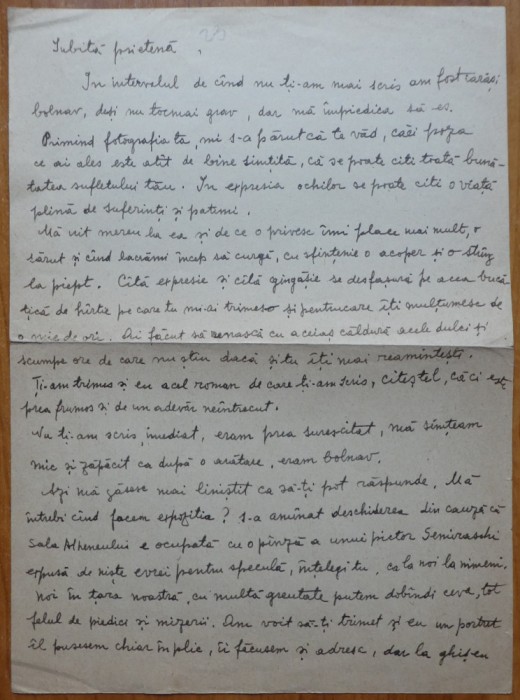 Iubită prietenă,
In intervalul de cînd nu ți-am mai scris am fost iarăși
bolnav, deși nu tocmai grav, dar mă împiedica să es.
Primind fotografia ta, mi s-a părut că te văd, căci poza
ce ai ales este atît de bine simțită, că se poate citi toată bună-
tatea sufletului tău. In expresia ochilor se poate citi o viață
plină de suferinți și patemi.
Mă uit mereu la ea și de ce o privesc îmi place mai mult, o
sărut și cînd lacrămi încep să curgă, cu sfințenie o acoper și o strîng
la piept. Cîtă expresie și cîtă gingășie se desfașură pe acea bucă
țică de hîrtie pe care tu mi-ai trimeso și pentru care îți mulțumesc de
o mie de ori. Ai făcut să renască cu aceiaș căldură acele dulci și
scumpe ore de care nu știu dacă și tu îți mai reamintești.
Ți-am trimus și eu acel roman de care ți-am scris, citeștel, căci este
prea frumos și de un adevăr neîntrecut.
Nu ți-am scris imediat, eram prea surescitat, mă simțeam
mic și zăpăcit ca după o arătare, eram bolnav.
Azi mă găsesc mai liniștit ca să-ți pot răspunde. Mă
întrebi cînd facem expoziția? s-a amînat deschiderea din cauză că
Sala Atheneului e ocupată cu o pînză a unui pictor Semiraschi
expusă de niște evrei pentru speculă, înțelegi tu, ca la noi la nimeni.
Noi în țara noastră, cu multă greutate putem dobîndi ceva, tot
felul de piedici și mizerii. Am voit să-ți trimet și eu un portret
îl pusesem chiar în plic, îi făcusem și adresă, dar la ghișeu